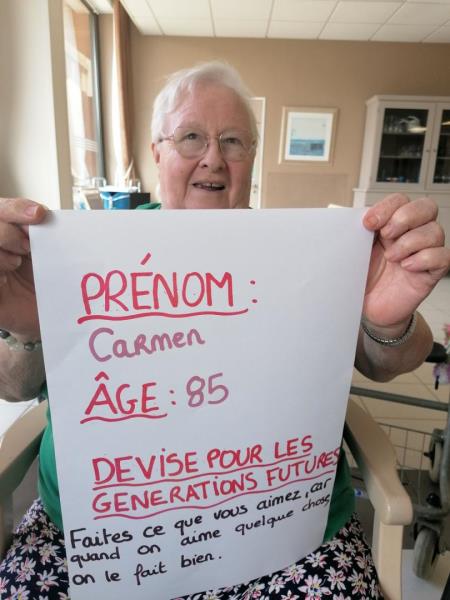 PRÉNOM :
Carmen
ÂGE : 85
DEVISE POUR LES
GENERATIONS FUTURES
Faites ce que vous aimez, car
quand on aime quelque chose,
on le fait bien.